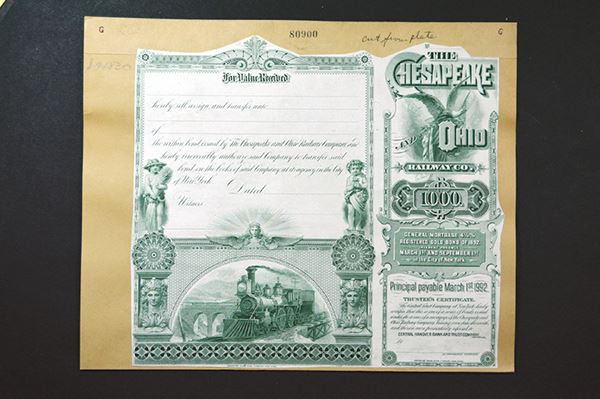 G 80900 G
Cut from plate
For Value Received
hereby sell, assign, and transfer unto
of
the within bond issued by The Chesapeake and Ohio Railway Company and
hereby irrevocably authorize said Company to transfer said
bond on the books of said Company at its agency in the City
of New York.
Dated
Witness
THE
CHESAPEAKE
AND
OHIO
RAILWAY COY.
1000
GENERAL MORTGAGE 4½%
REGISTERED GOLD BOND OF 1892
INTEREST PAYABLE
MARCH 1ST AND SEPTEMBER 1ST
in the City of New York.
Principal payable March 1st, 1992.
TRUSTEE'S CERTIFICATE.
CENTRAL HANOVER BANK AND TRUST COMPANY,